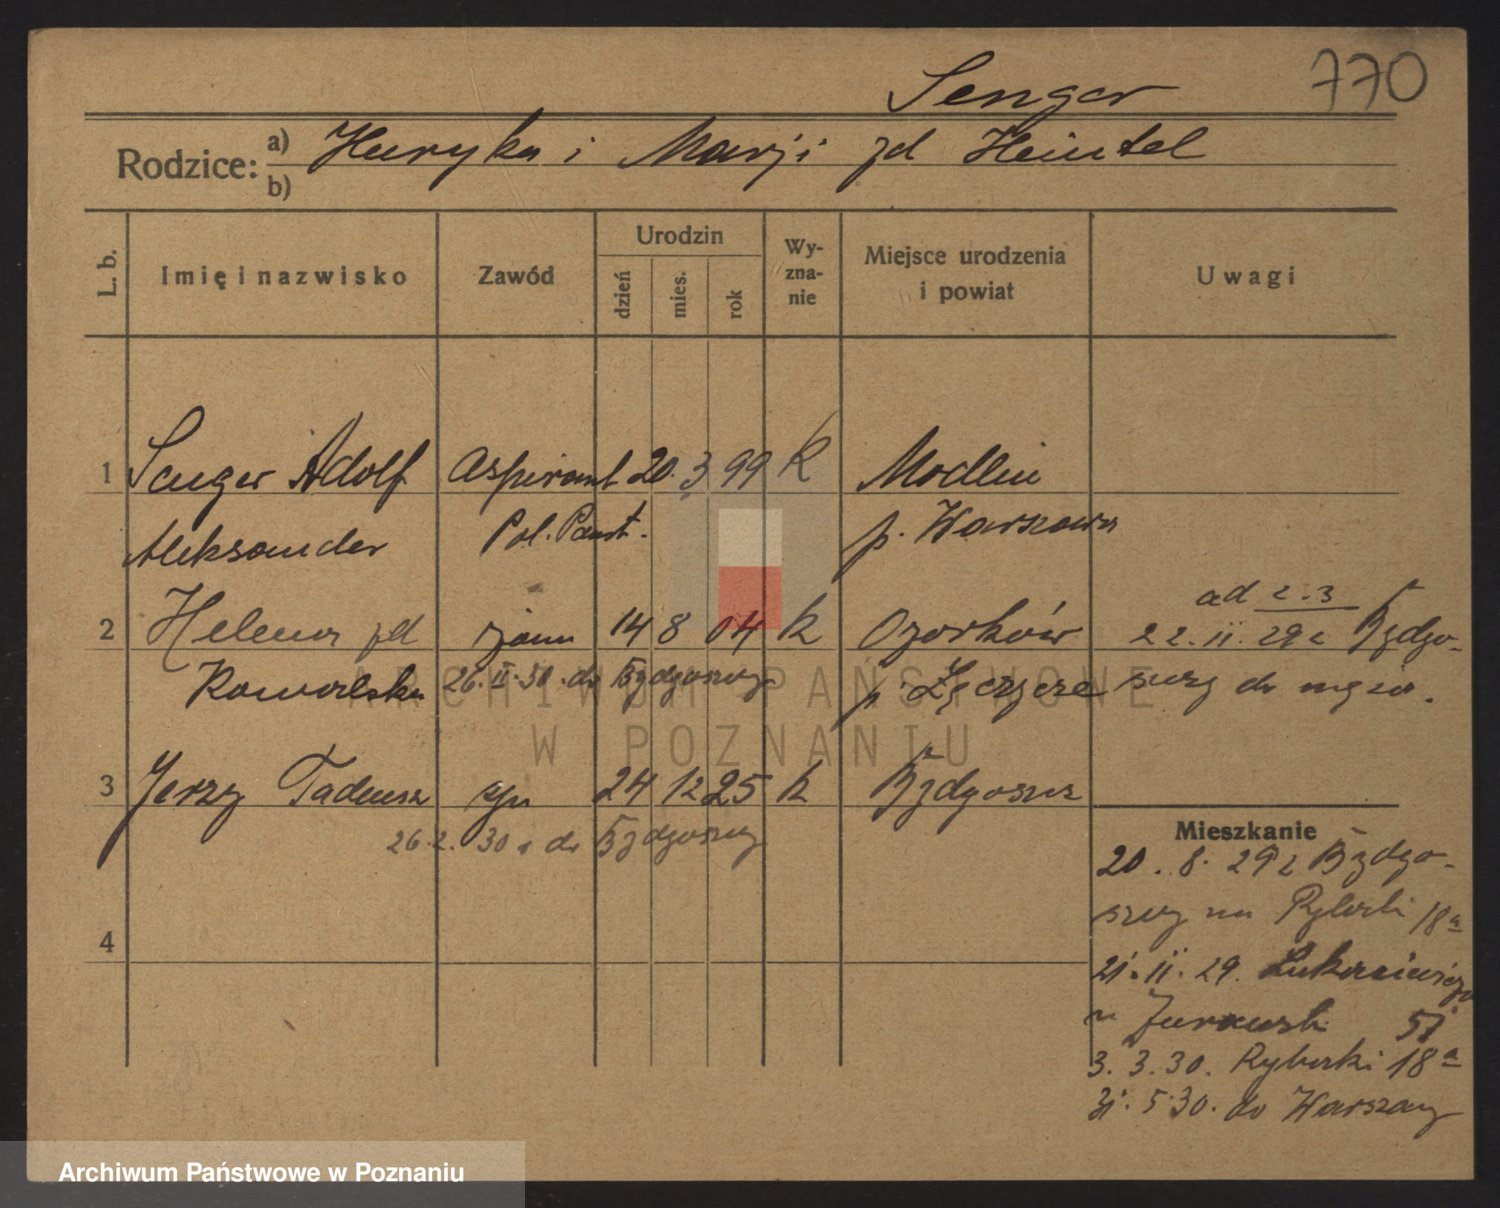 770
Senger
Rodzice: a) Henryka i Marji zd Heintel
b)
L. b. Imię i nazwisko Zawód Urodzin dzień mies. rok Wy-zna-nie Miejsce urodzenia i powiat Uwagi
1 Senger Adolf Aspirant 20. 3 99 k Modlin
Aleksander Pol. Państ. p. Warszawa
ad 2.3
2 Helena zd żona 14 8 04 k Ozorków 22. 11. 29 z Bydgo-
Kowalska 26. II. 30. do Bydgoszczy p. Łęczyca szczy do męża.
3 Jerzy Tadeusz syn 24 12 25 k Bydgoszcz
26. 2. 30 do Bydgoszczy
Mieszkanie
20. 8. 29 z Bydgo-
szczy na Rybaki 18a
4
21. 11. 29. Łukasiewicza
u 51
3. 3. 30. Rybaki 18a
31. 5. 30. do Warszawy
ARCHIWUM PAŃSTWOWE
W POZNANIU
Archiwum Państwowe w Poznaniu